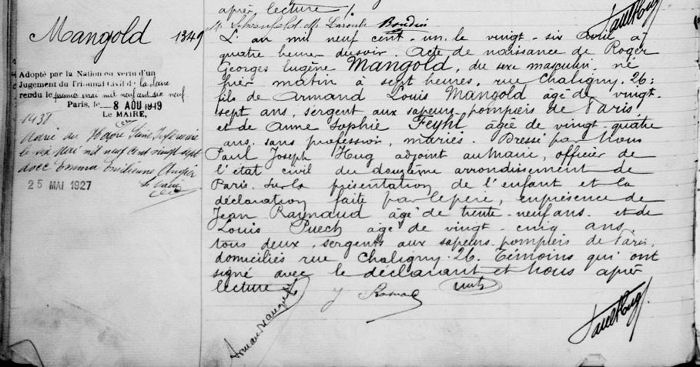 après lecture
Mangold 1349
Adopté par la Nation en vertu d'un
Jugement du Tribunal Civil de la Seine
rendu le mai mil neuf cent neuf
Paris, le 8 AOU 1919
Le MAIRE,
1438
Marié au
le mai mil neuf cent vingt sept
avec Emma
25 MAI 1927
L'an mil neuf cent un le vingt-six avril à
quatre heures du soir. Acte de naissance de Roger
Georges Eugène MANGOLD, du sexe masculin né
hier matin à sept heures, rue Chaligny, 26;
fils de Armand Louis MANGOLD âgé de vingt-
sept ans, sergent aux sapeurs-pompiers de Paris
et de Anne Sophie âgée de vingt-quatre
ans, sans profession, mariés. Dressé par nous
Paul Joseph Hug adjoint au Maire, officier de
l'état civil du douzième arrondissement de
Paris. Sur la présentation de l'enfant et la
déclaration faite par le père, en présence de
Jean Raynaud âgé de trente-neuf ans. et de
Louis Puech âgé de vingt-cinq ans,
tous deux, sergents aux sapeurs-pompiers de Paris,
domiciliés rue Chaligny. 26. Témoins qui ont
signé avec le déclarant et Nous après
lecture
Paul Hug